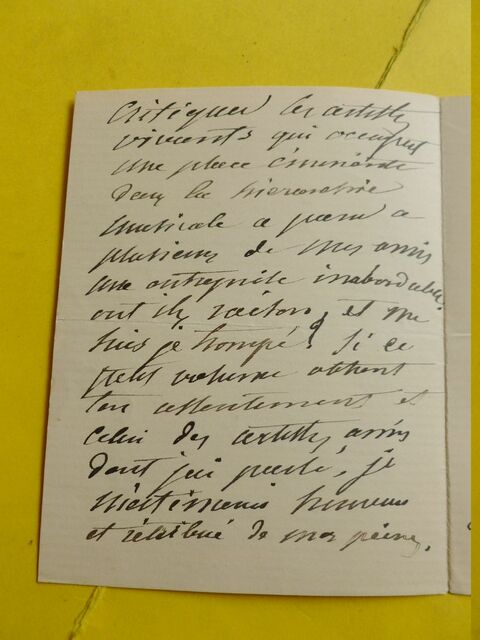 Critiquer les artistes
vivants qui occupent
une place éminente
dans la hierarchie
musicale a paru a
plusieurs de mes amis
une entreprise inabordable.
ont ils raison, et me
suis je trompé? Si ce
petit volume obtient
ton assentiment et
celui des artistes amis
dont j'ai parlé, je
m'estimerais heureux
et rétribué de mes peines.